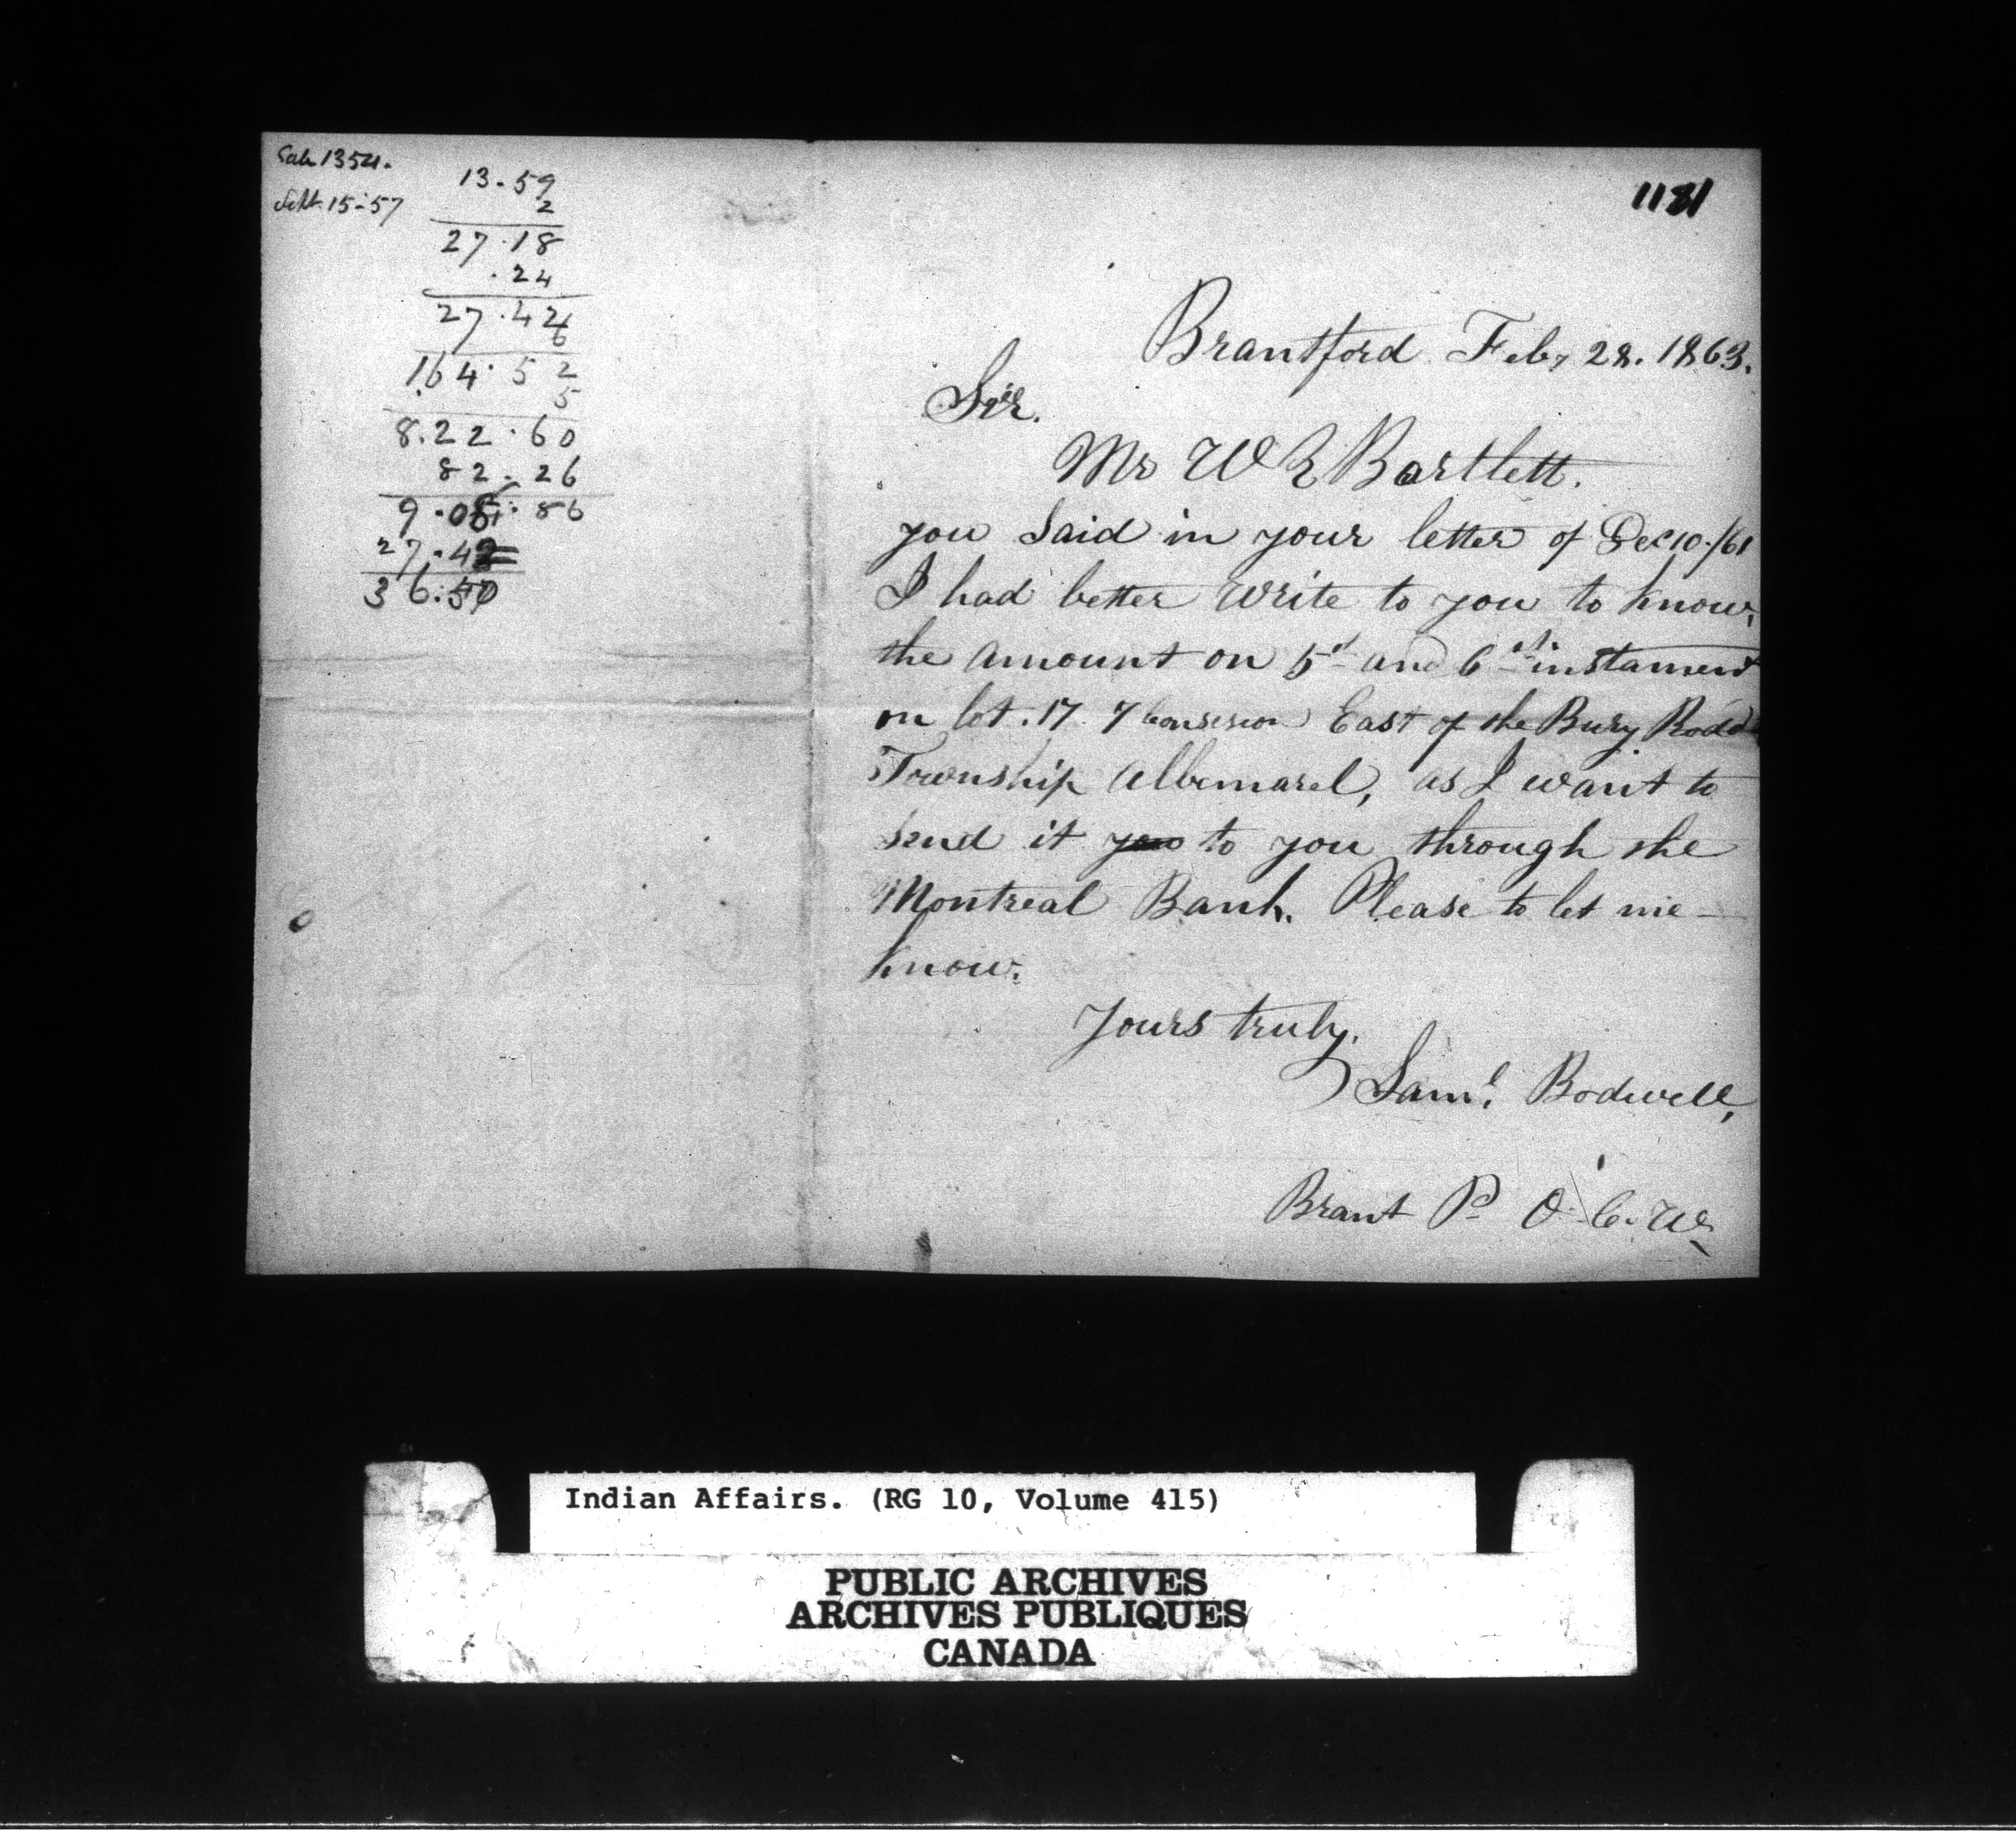 Sale 1354.
Sept. 15-57
13.59
2
27.18
.24
27.42
6
164.52
5
8.22.60
82.26
9.05.86
27.42
36.50
1181
Brantford Feby 28. 1863.
Sir.
Mr W R Bartlett.
you Said in your letter of Dec 10/61
I had better Write to you to know,
the amount on 5th and 6th instament
on lot. 17. 7 Consesion East of the Bury Rode
Township Albemarel, as I want to
Send it you to you through the
Montreal Bank. Please to let me
know.
Yours truly,
Saml. Bodwell,
Brant P. O. C. W.
Indian Affairs. (RG 10, Volume 415)
PUBLIC ARCHIVES
ARCHIVES PUBLIQUES
CANADA